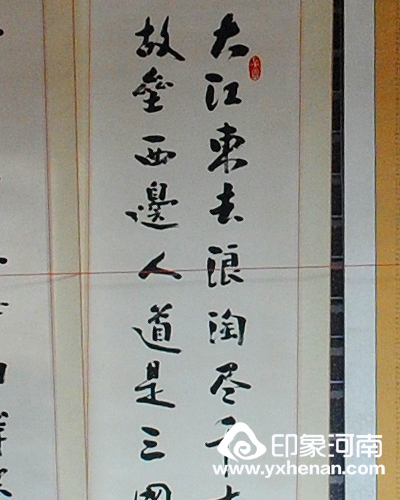 大江東去浪淘尽千古
故垒西邊人道是三國
印象河南
www.yxhenan.com